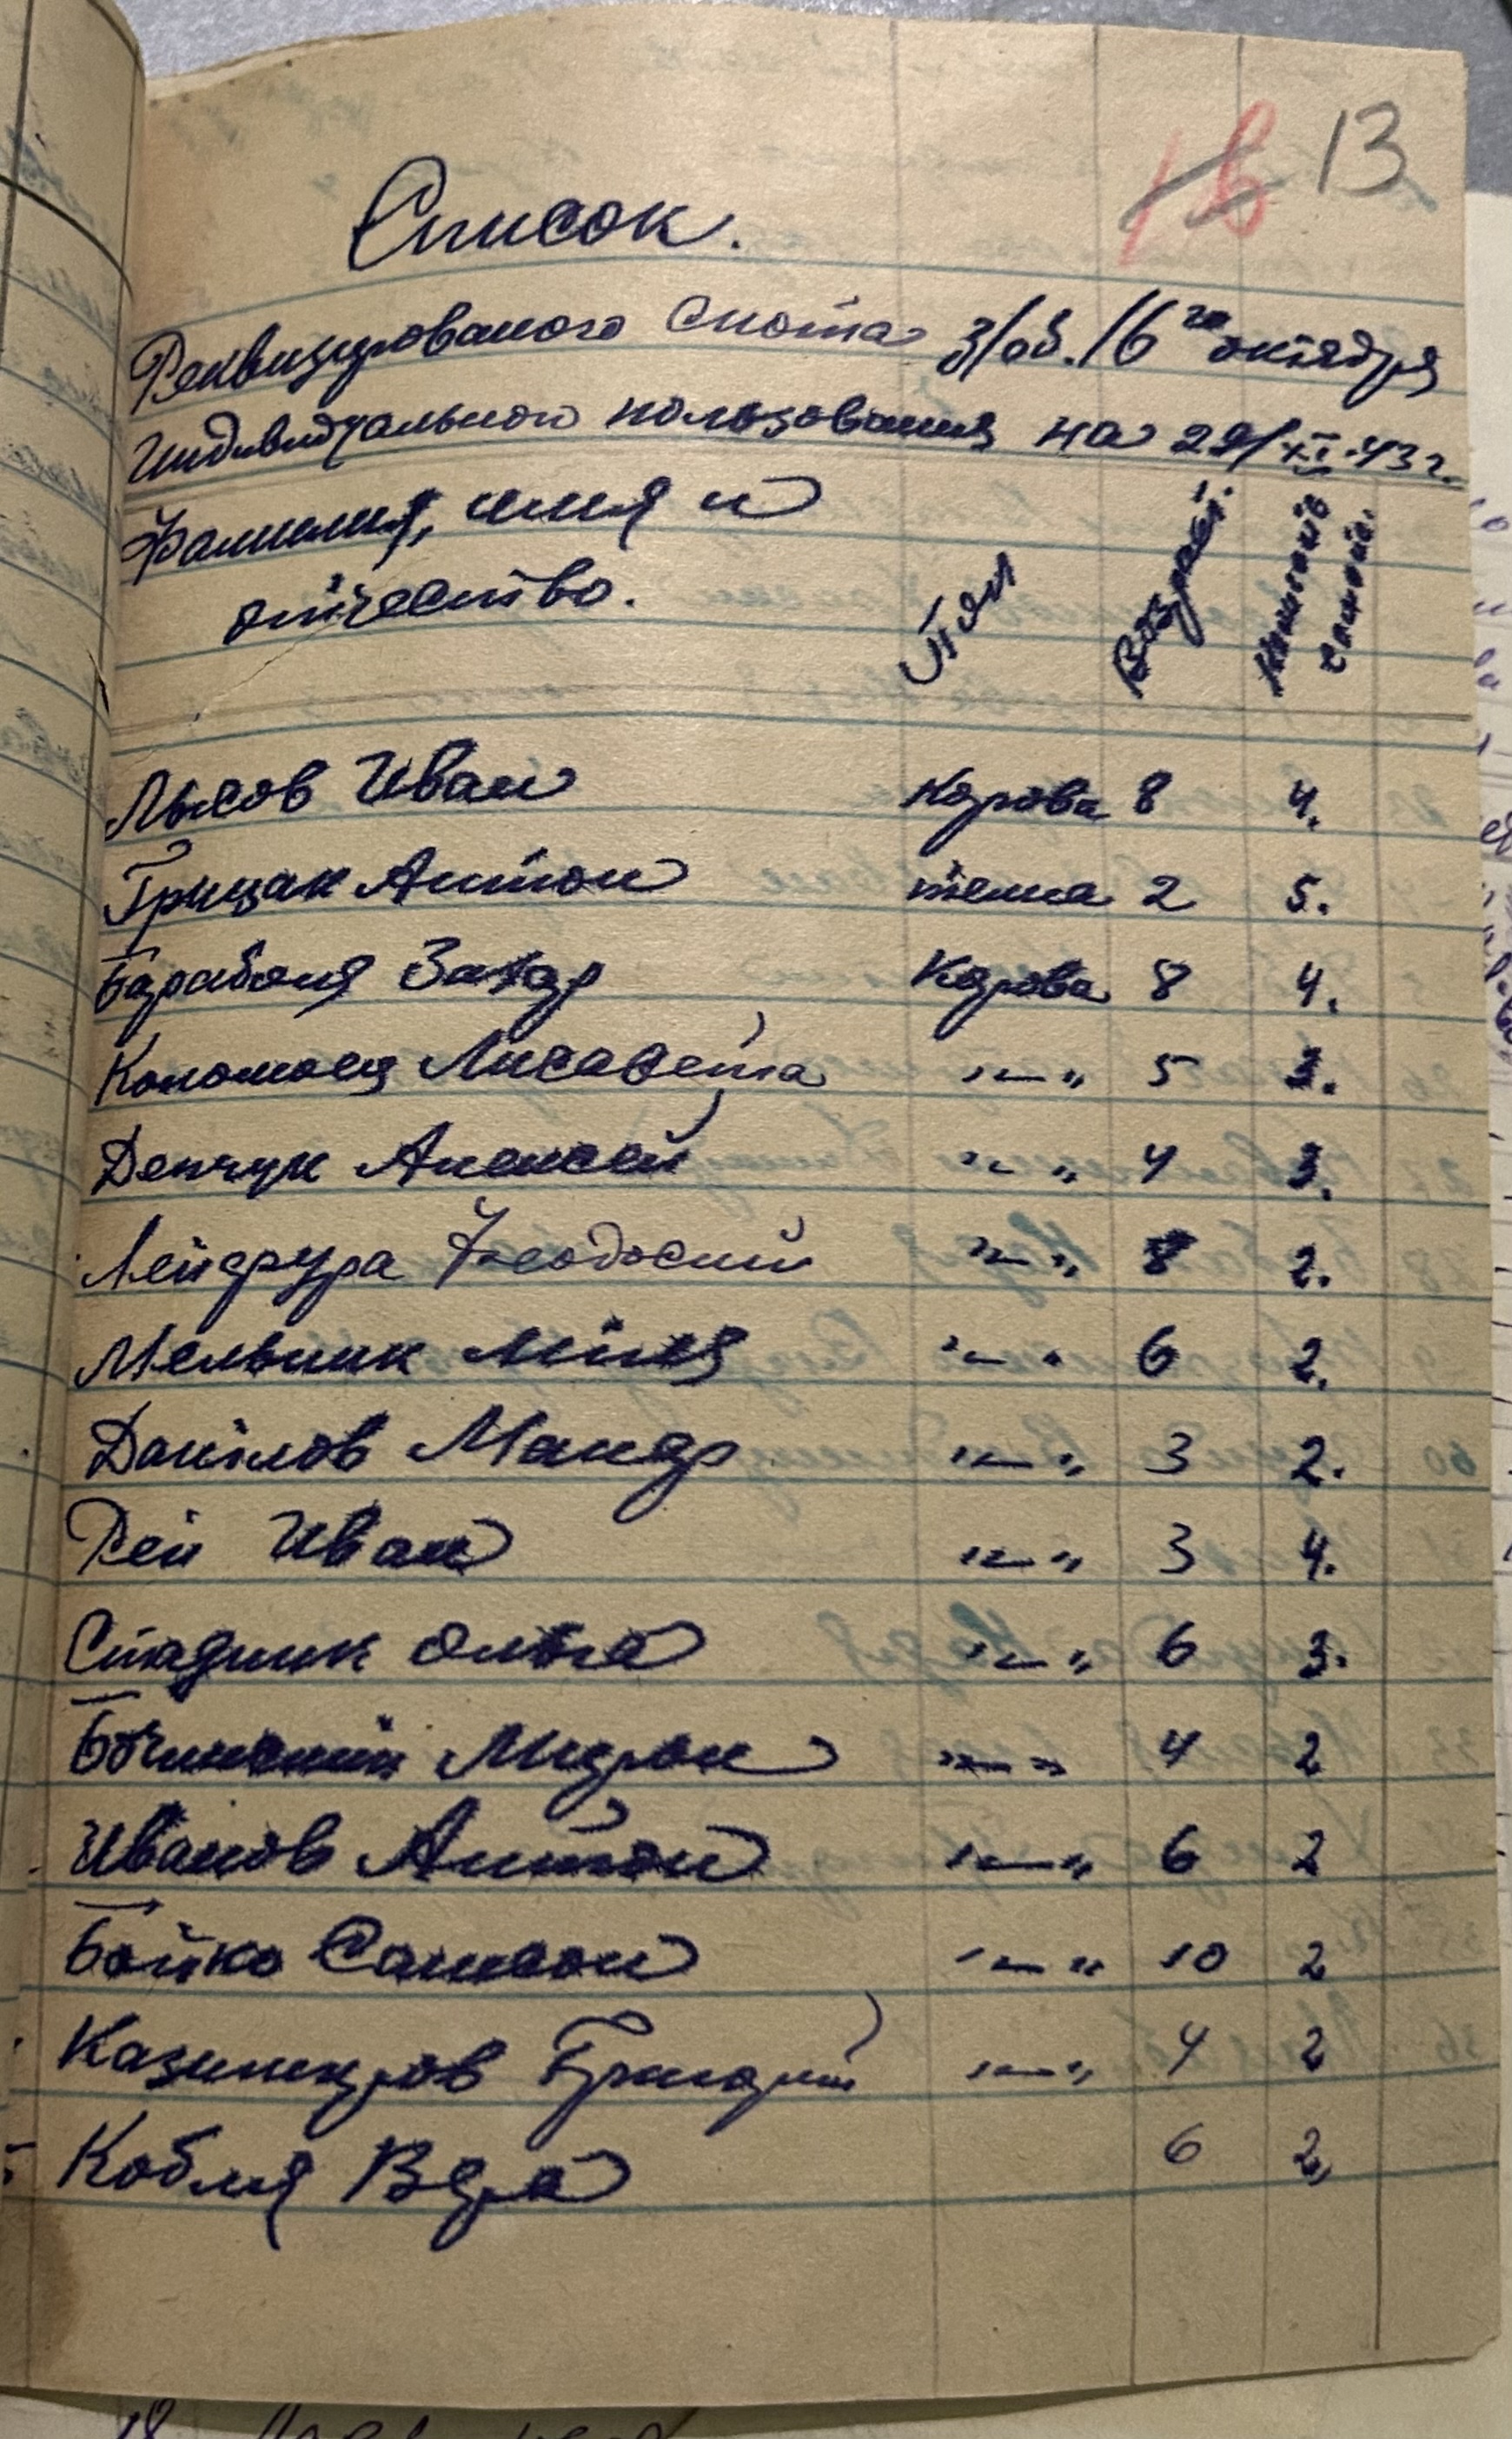 16 13
Список.
Реквизированого скота з/об. /6го октября
Индивидуального пользования на 29/XI-43г.
Фамилия, имя и
отчество.
Пол
Возраст.
Лысов Иван корова 8 4.
Грицак Антон телка 2 5.
Бараболя Захар корова 8 4.
Коломоец Лисавета " — " 5 3.
Демчук Алексей " — " 4 3.
Феодосий " — " 8 2.
Мельник " — " 6 2.
Данілов Макар " — " 3 2.
Рей Иван " — " 3 4.
Стадник Ольга " — " 6 3.
Мирон " — " 4 2
Иванов Антон " — " 6 2
Бойко Самсон " — " 10 2
Казимиров Григорий " — " 4 2
Кобля Вера 6 2